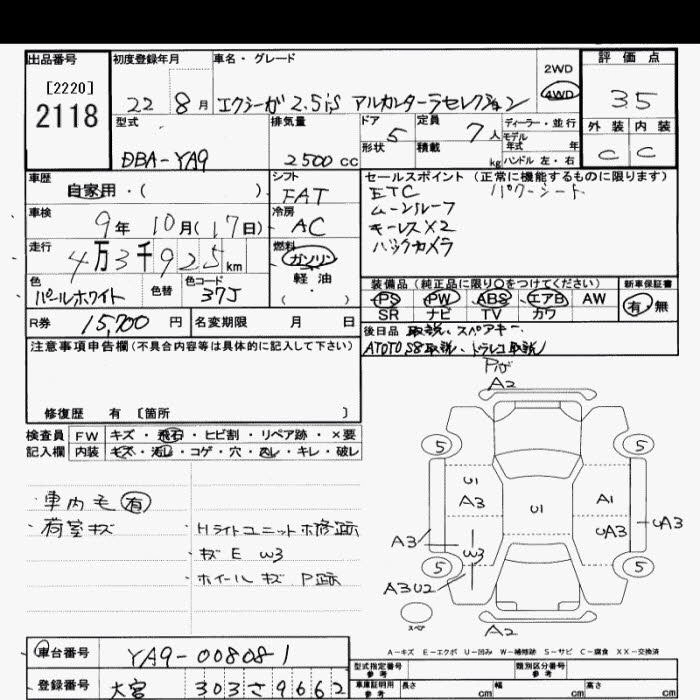 出品番号 初度登録年月 車名・グレード 評価点
[2220]
2118
22 8月 エクシーガ 2.5iS アルカンターラセレクション
2WD
4WD
3.5
型式 排気量 ドア 定員 ディーラー・並行 外装 内装
DBA-YA9 2500cc 5 7人 モデル年式 年
形状 積載 kg ハンドル 左・右 C C
車歴 シフト セールスポイント (正常に機能するものに限ります)
自家用・( ) FAT ETC パワーシート
ムーンルーフ
車検 冷房 キーレス×2
9年 10月(17日) AC バックカメラ
走行 燃料
4万3千925km ガソリン
軽油
・( )
色 色替 色コード 装備品 (純正品に限り○をつけてください) 新車保証書
パールホワイト 37J PS PW ABS エアB AW 有 無
SR ナビ TV カワ
R券 15,700円 名変期限 月 日 後日品 取説、スペアキー、
ATOTO S8取説、ドラレコ取説
注意事項申告欄(不具合内容等は具体的に記入して下さい)
修復歴 有 [箇所 ]
検査員 FW キズ・飛石・ヒビ割・リペア跡・×要
記入欄 内装 キズ・汚レ・コゲ・穴・凹レ・キレ・破レ
・車内毛 有
・荷室キズ
・Hライトユニットホ修跡
・キズ E W3
・ホイールキズ P跡
Pガ
A2
5 5
U1
A3 U1 A1
UA3 UA3
A3 W3
5 5
A3U2
スペア
A2
A-キズ E-エクボ U-凹み W-補修跡 S-サビ C-腐食 XX-交換済
車台番号 YA9-008081 型式指定番号 参考 類別区分番号 参考
登録番号 大宮 303 さ 9662 車庫証明用 参考 長さ cm 幅 cm 高さ cm